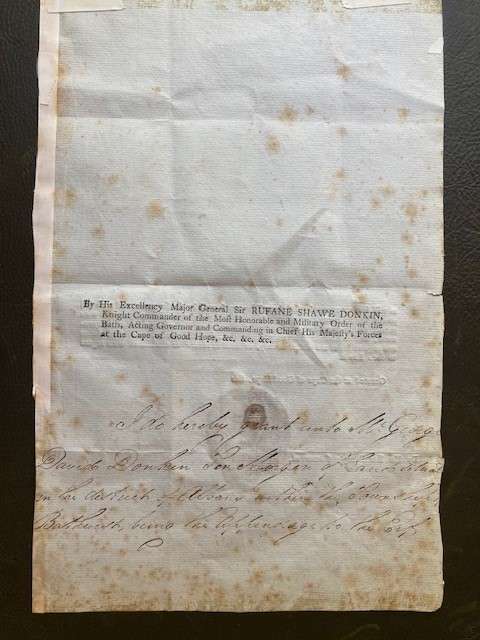 By His Excellency Major General Sir RUFANE SHAWE DONKIN,
Knight Commander of the Most Honorable and Military Order of the
Bath, Acting Governor and Commanding in Chief His Majesty's Forces
at the Cape of Good Hope, &c. &c. &c.
I do hereby grant unto Mr. George
David Donkin Ten Morgen of Land
in the district of Albany within the Township
Bathurst, being the to the Erf